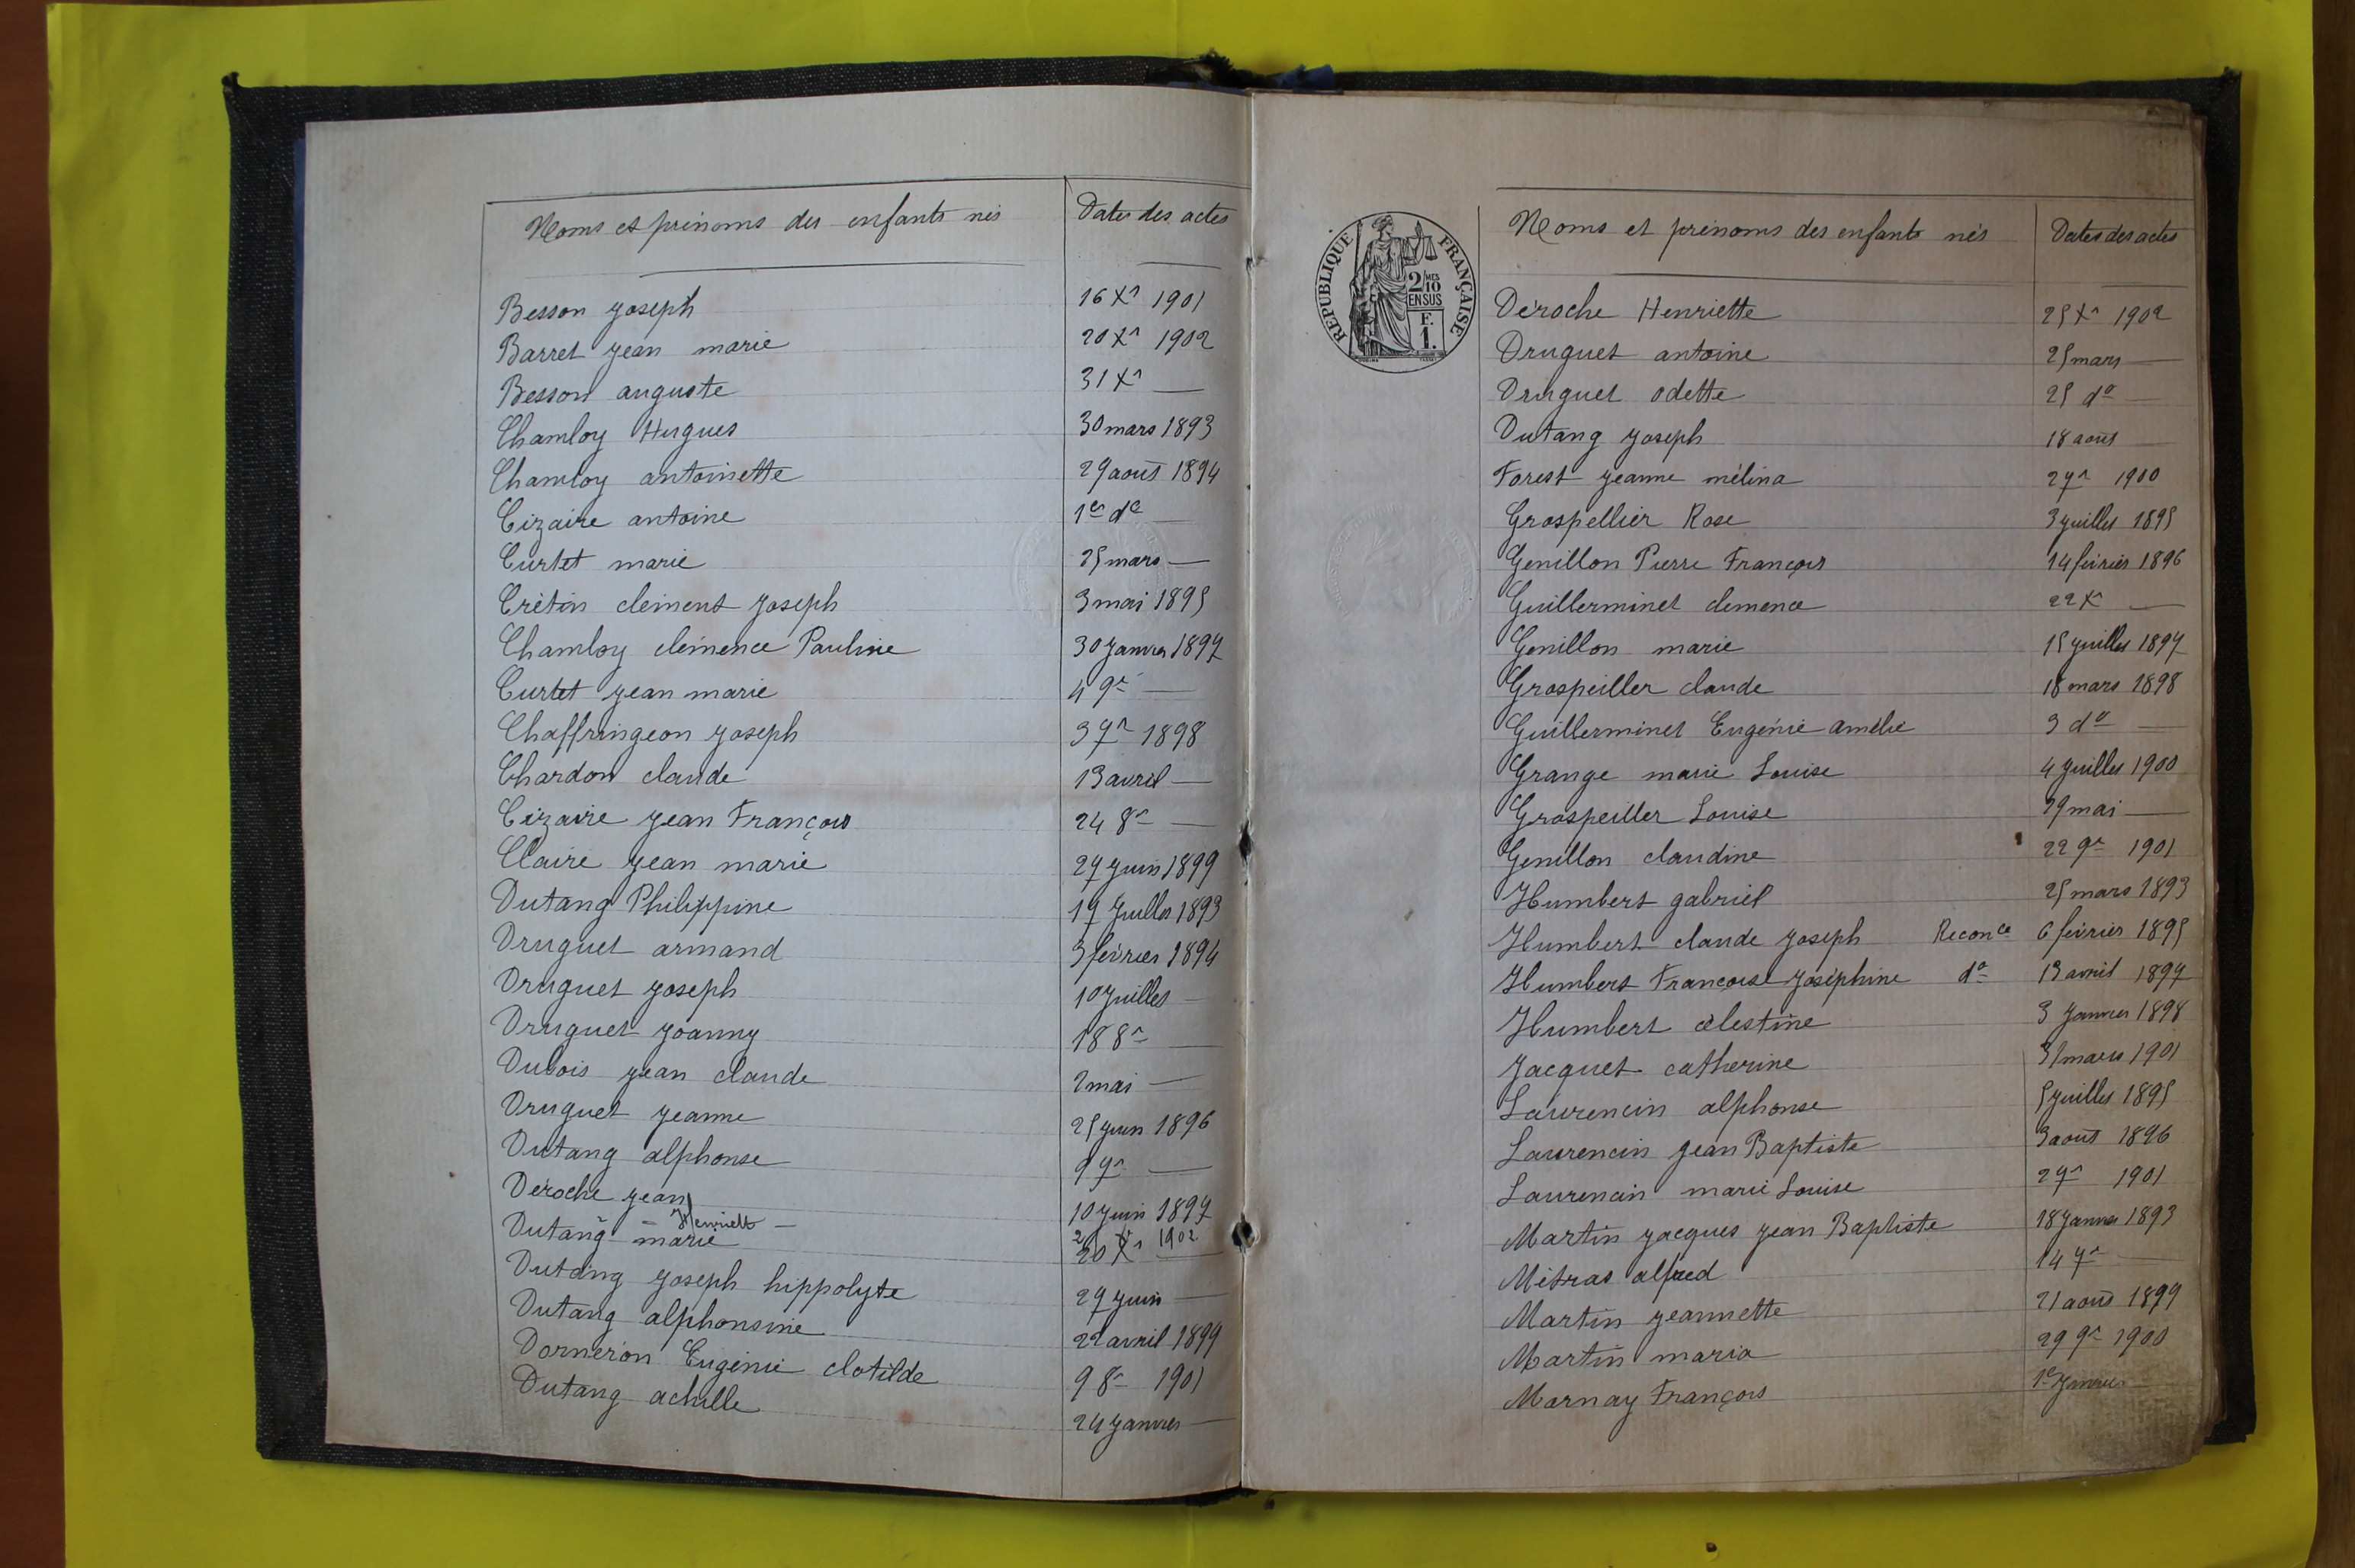 Noms et prénoms des enfants nés Dates des actes
Besson Joseph 16 Xr 1901
Barret Jean marie 20 Xr 1902
Besson auguste 31 Xr —
Chamloy Hugues 30 mars 1893
Chamloy antoinette 29 août 1894
Cizaire antoine 1er do —
Curtet marie 25 mars —
Crétin clément Joseph 3 mai 1895
Chamloy clémence Pauline 30 Janvier 1897
Curtet Jean marie 4 9r —
Chaffringeon Joseph 3 7r 1898
Chardon claude 13 avril —
Cizaire Jean François 24 8r —
Claire Jean marie 27 Juin 1899
Dutang Philippine 17 Juillet 1893
Druguet armand 3 février 1894
Druguet Joseph 10 Juillet —
Druguet Joanny 18 8r —
Dubois Jean claude 2 mai —
Druguet Jeanne 25 Juin 1896
Dutang alphonse 9 7r —
Déroche Jean 10 Juin 1897
— Henriett — 2 Xr 1902
Dutang marie 20 Xr —
Dutang Joseph hippolyte 27 Juin —
Dutang alphonsine 22 avril 1899
Dorneron Eugénie clotilde 9 8r 1901
Dutang achille 24 Janvier —
REPUBLIQUE FRANÇAISE
2/10 MES
EN SUS
F.
1.
Noms et prénoms des enfants nés Dates des actes
Déroche Henriette 25 Xr 1902
Druguet antoine 25 mars —
Druguet odette 25 do —
Dutang Joseph 18 août —
Forest Jeanne mélina 2 7r 1900
Grospellier Rose 3 Juillet 1895
Genillon Pierre François 14 février 1896
Guillerminet clemence 22 Xr —
Genillon marie 15 Juillet 1897
Grospeiller claude 18 mars 1898
Guillerminet Eugénie amélie 3 do —
Grange marie Louise 4 Juillet 1900
Grospeiller Louise 29 mai —
Genillon claudine 22 9r 1901
Humbert gabriel 25 mars 1893
Humbert claude Joseph Reconce 6 février 1895
Humbert Françoise Joséphine do 13 avril 1897
Humbert célestine 3 Janvier 1898
Jacquet catherine 31 mars 1901
Laurencin alphonse 5 Juillet 1895
Laurencin Jean Baptiste 3 août 1896
Laurencin marie Louise 2 7r 1901
Martin Jacques Jean Baptiste 18 Janvier 1893
Métras alfred 14 7r —
Martin Jeannette 21 août 1899
Martin maria 29 9r 1900
Marnay François 1er Janvier —